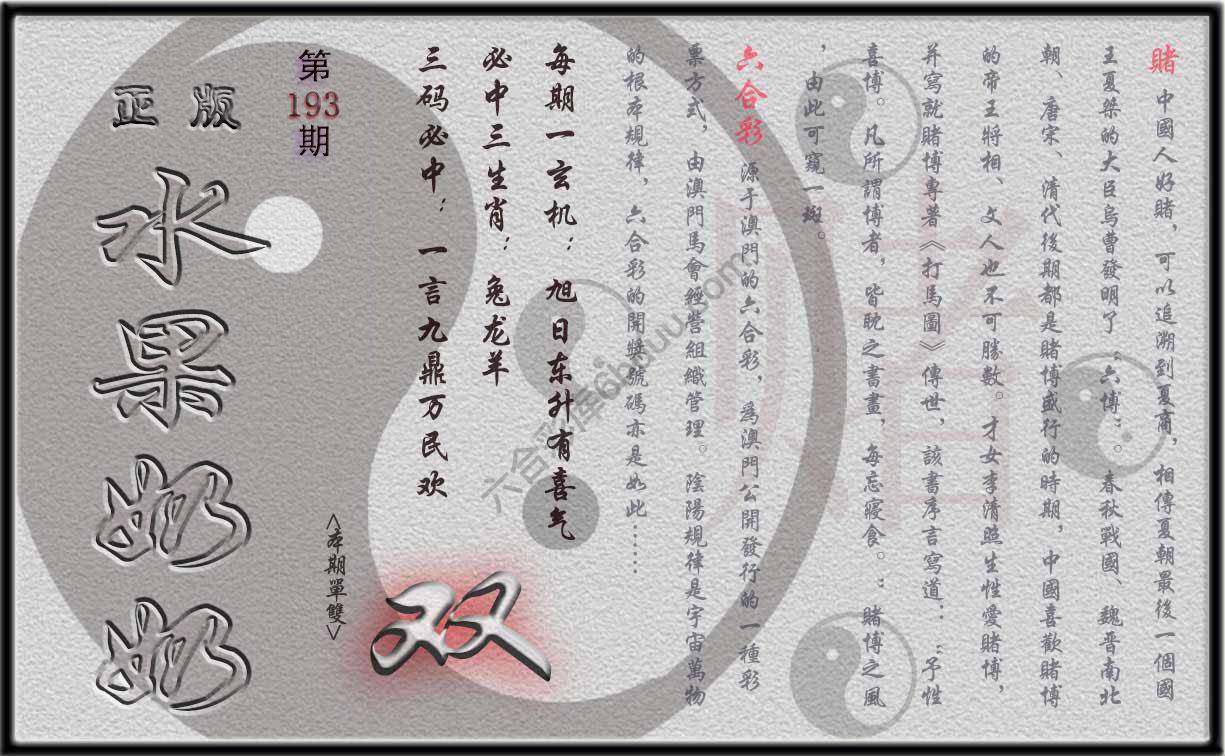 賭 中國人好賭，可以追溯到夏商，相傳夏朝最後一個國
王夏桀的大臣烏曹發明了“六博”。春秋戰國、魏晋南北
朝、唐宋、清代後期都是賭博盛行的時期，中國喜歡賭博
的帝王將相、文人也不可勝數。才女李清照生性愛賭博，
并寫就賭博專著《打馬圖》傳世，該書序言寫道：“予性
喜博。凡所謂博者，皆眈之書畫，每忘寢食。：賭博之風
，由此可窺一斑。
六合彩 源于澳門的六合彩，爲澳門公開發行的一種彩
票方式，由澳門馬會經營組織管理。陰陽規律是宇宙萬物
的根本規律，六合彩的開獎號碼亦是如此……
每期一玄机：旭日东升有喜气
必中三生肖：兔龙羊
三码必中：一言九鼎万民欢
第
193
期
<本期單雙>
双
正版
水果奶奶
賭
六合彩库6hduu.com